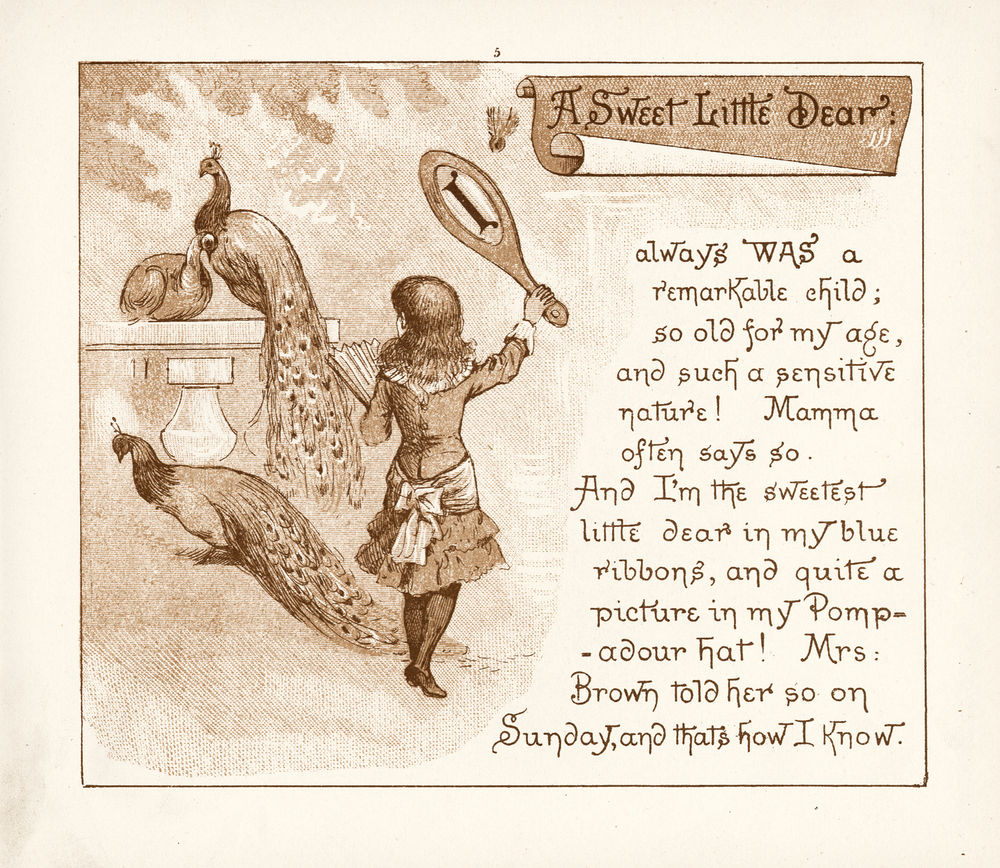 5
A Sweet Little Dear:
I
always WAS a
remarkable child;
so old for my age,
and such a sensitive
nature! Mamma
often says so.
And I'm the sweetest
little dear in my blue
ribbons, and quite a
picture in my Pomp=
-adour hat! Mrs:
Brown told her so on
Sunday, and thats how I know.